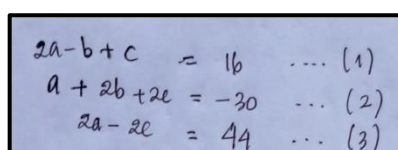 2a - b + c = 16 .... (1)
a + 2b + 2c = -30 ... (2)
2a - 2c = 44 ... (3)